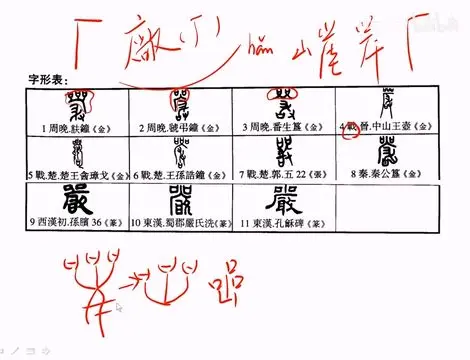 厂 廠(厂) hǎn 山崖岸厂
字形表：
1 周晚.㝬鐘《金》 2 周晚.虢弔鐘《金》 3 周晚.番生簋《金》 4 戰.晉.中山王壺《金》
5 戰.楚.楚王酓璋戈《金》 6 戰.楚.王孫誥鐘《金》 7 戰.楚.郭.五 22《張》 8 秦.秦公簋《金》
9 西漢初.孫臏 36《篆》 10 東漢.蜀郡嚴氏洗《篆》 11 東漢.孔龢碑《篆》